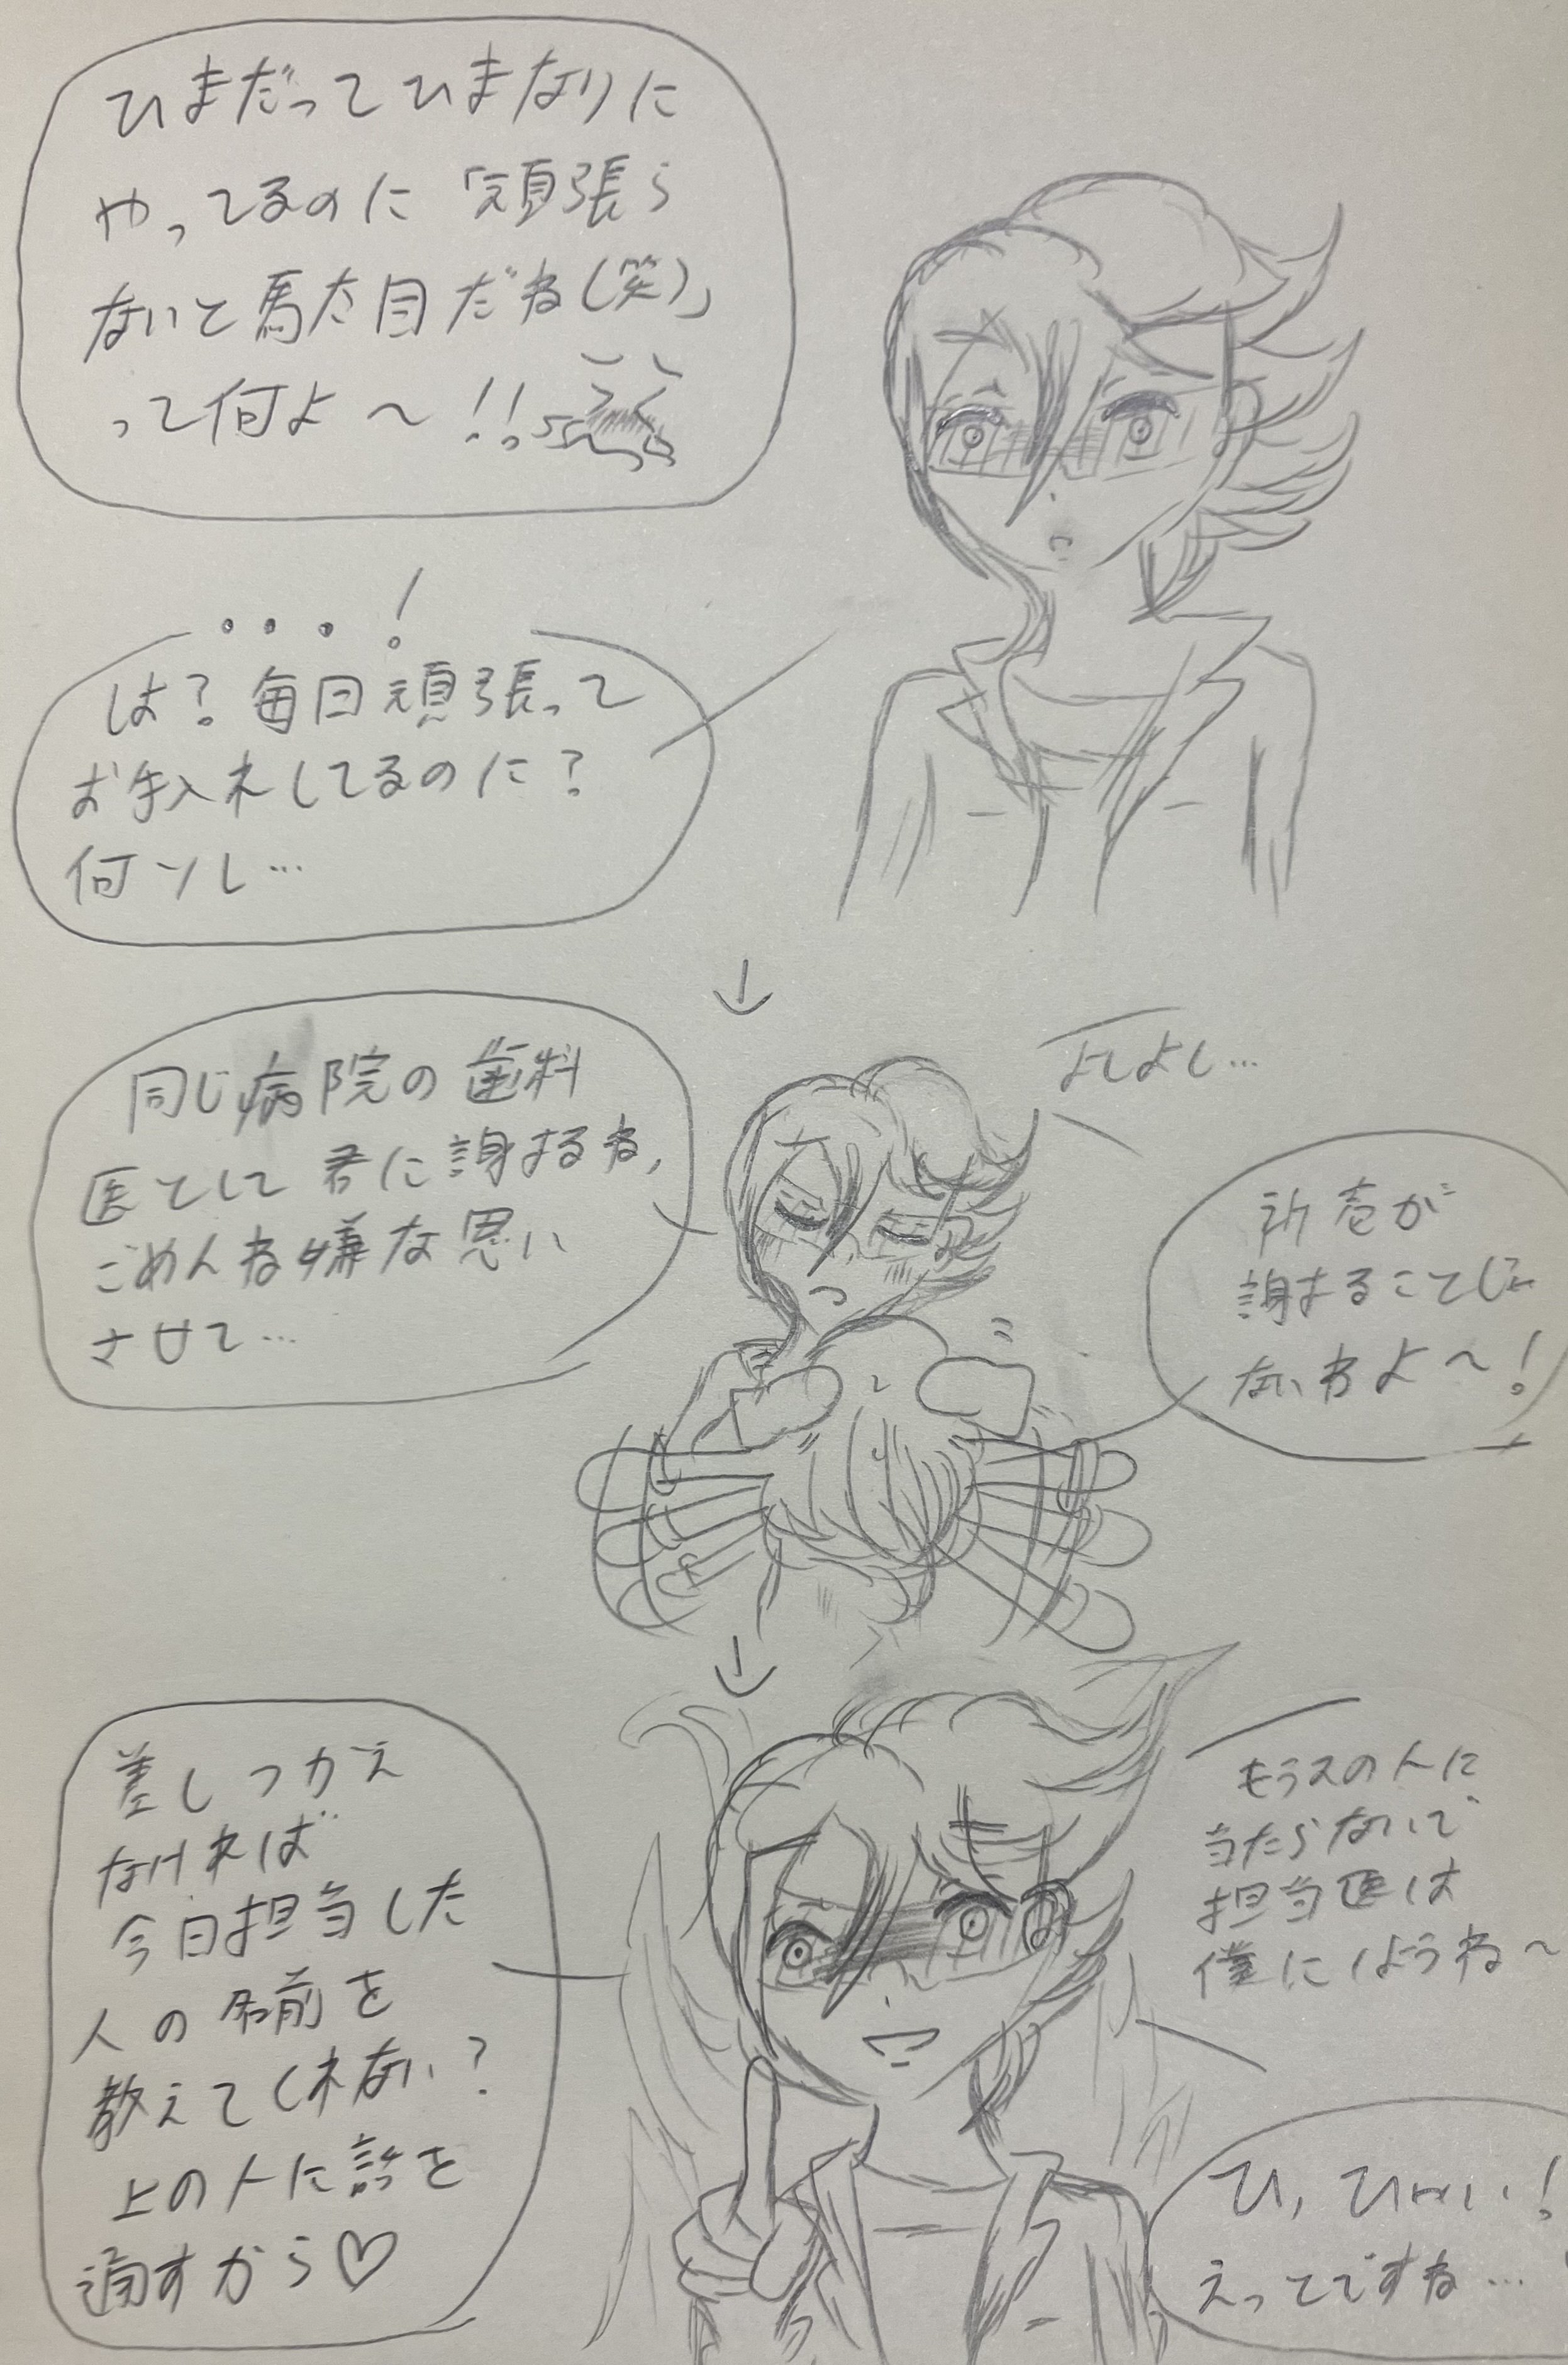 ひまだってひまなりに
やってるのに「頑張ら
ないと駄目だね(笑)」
って何よ〜!!
・・・!
は?毎日頑張って
お手入れしてるのに?
何ソレ…
↓
よしよし…
同じ病院の歯科
医として君に謝るね,
ごめんね嫌な思い
させて…
が
謝まることじゃ
ないわよ〜!
↓
差しつかえ
なければ
今日担当した
人の名前を
教えてくれない?
上の人に話を
通すから♡
もうスの人に
当たらないで
担当医は
僕にしようね〜
ひ,ひゃい!
えってですね…